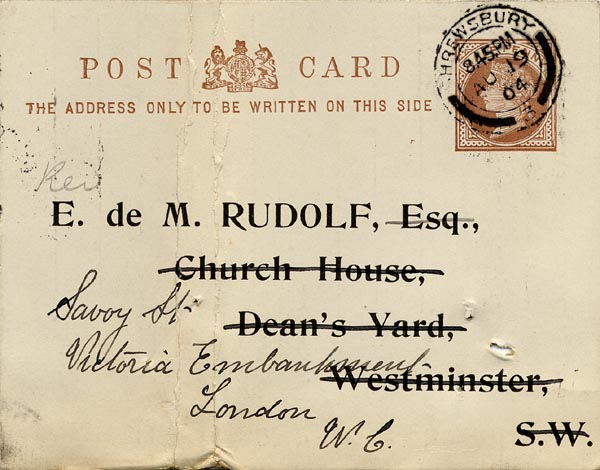 POST CARD
THE ADDRESS ONLY TO BE WRITTEN ON THIS SIDE
SHREWSBURY
8.45PM
AU 19
04
Rev
E. de M. RUDOLF, Esq.,
Church House,
Savoy St.
Dean's Yard,
Victoria Embankment
Westminster,
London
W.C.
S.W.